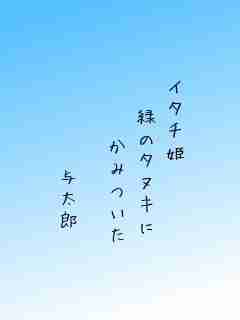 イタチ姫
緑のタヌキに
かみついた
与太郎